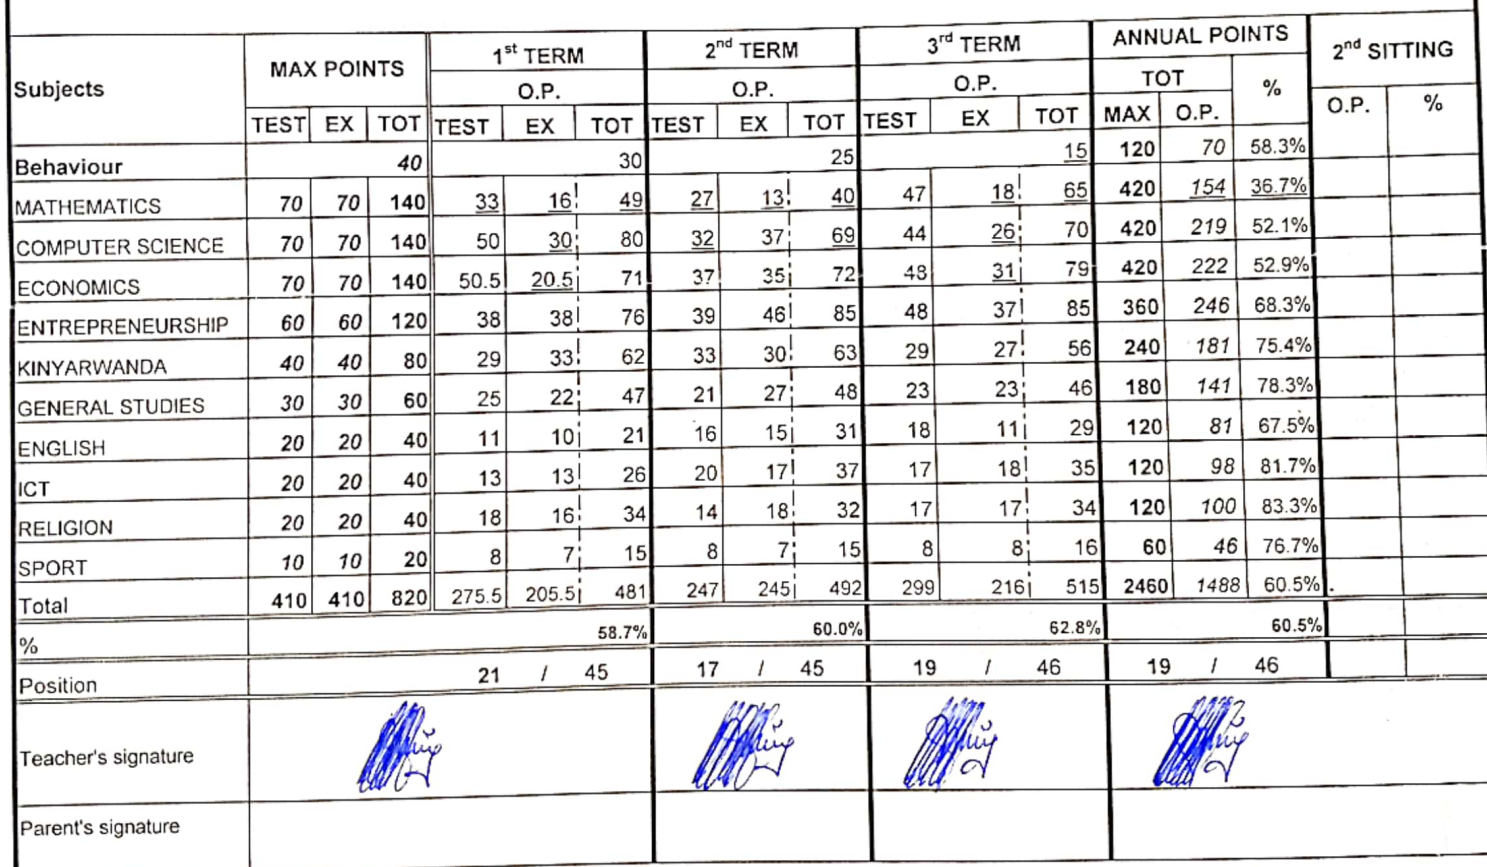 Subjects MAX POINTS 1st TERM 2nd TERM 3rd TERM ANNUAL POINTS 2nd SITTING
O.P. O.P. O.P. TOT % O.P. %
TEST EX TOT TEST EX TOT TEST EX TOT TEST EX TOT MAX O.P.
Behaviour 40 30 25 15 120 70 58.3%
MATHEMATICS 70 70 140 33 16 49 27 13 40 47 18 65 420 154 36.7%
COMPUTER SCIENCE 70 70 140 50 30 80 32 37 69 44 26 70 420 219 52.1%
ECONOMICS 70 70 140 50.5 20.5 71 37 35 72 48 31 79 420 222 52.9%
ENTREPRENEURSHIP 60 60 120 38 38 76 39 46 85 48 37 85 360 246 68.3%
KINYARWANDA 40 40 80 29 33 62 33 30 63 29 27 56 240 181 75.4%
GENERAL STUDIES 30 30 60 25 22 47 21 27 48 23 23 46 180 141 78.3%
ENGLISH 20 20 40 11 10 21 16 15 31 18 11 29 120 81 67.5%
ICT 20 20 40 13 13 26 20 17 37 17 18 35 120 98 81.7%
RELIGION 20 20 40 18 16 34 14 18 32 17 17 34 120 100 83.3%
SPORT 10 10 20 8 7 15 8 7 15 8 8 16 60 46 76.7%
Total 410 410 820 275.5 205.5 481 247 245 492 299 216 515 2460 1488 60.5%
% 58.7% 60.0% 62.8% 60.5%
Position 21 / 45 17 / 45 19 / 46 19 / 46
Teacher's signature
Parent's signature